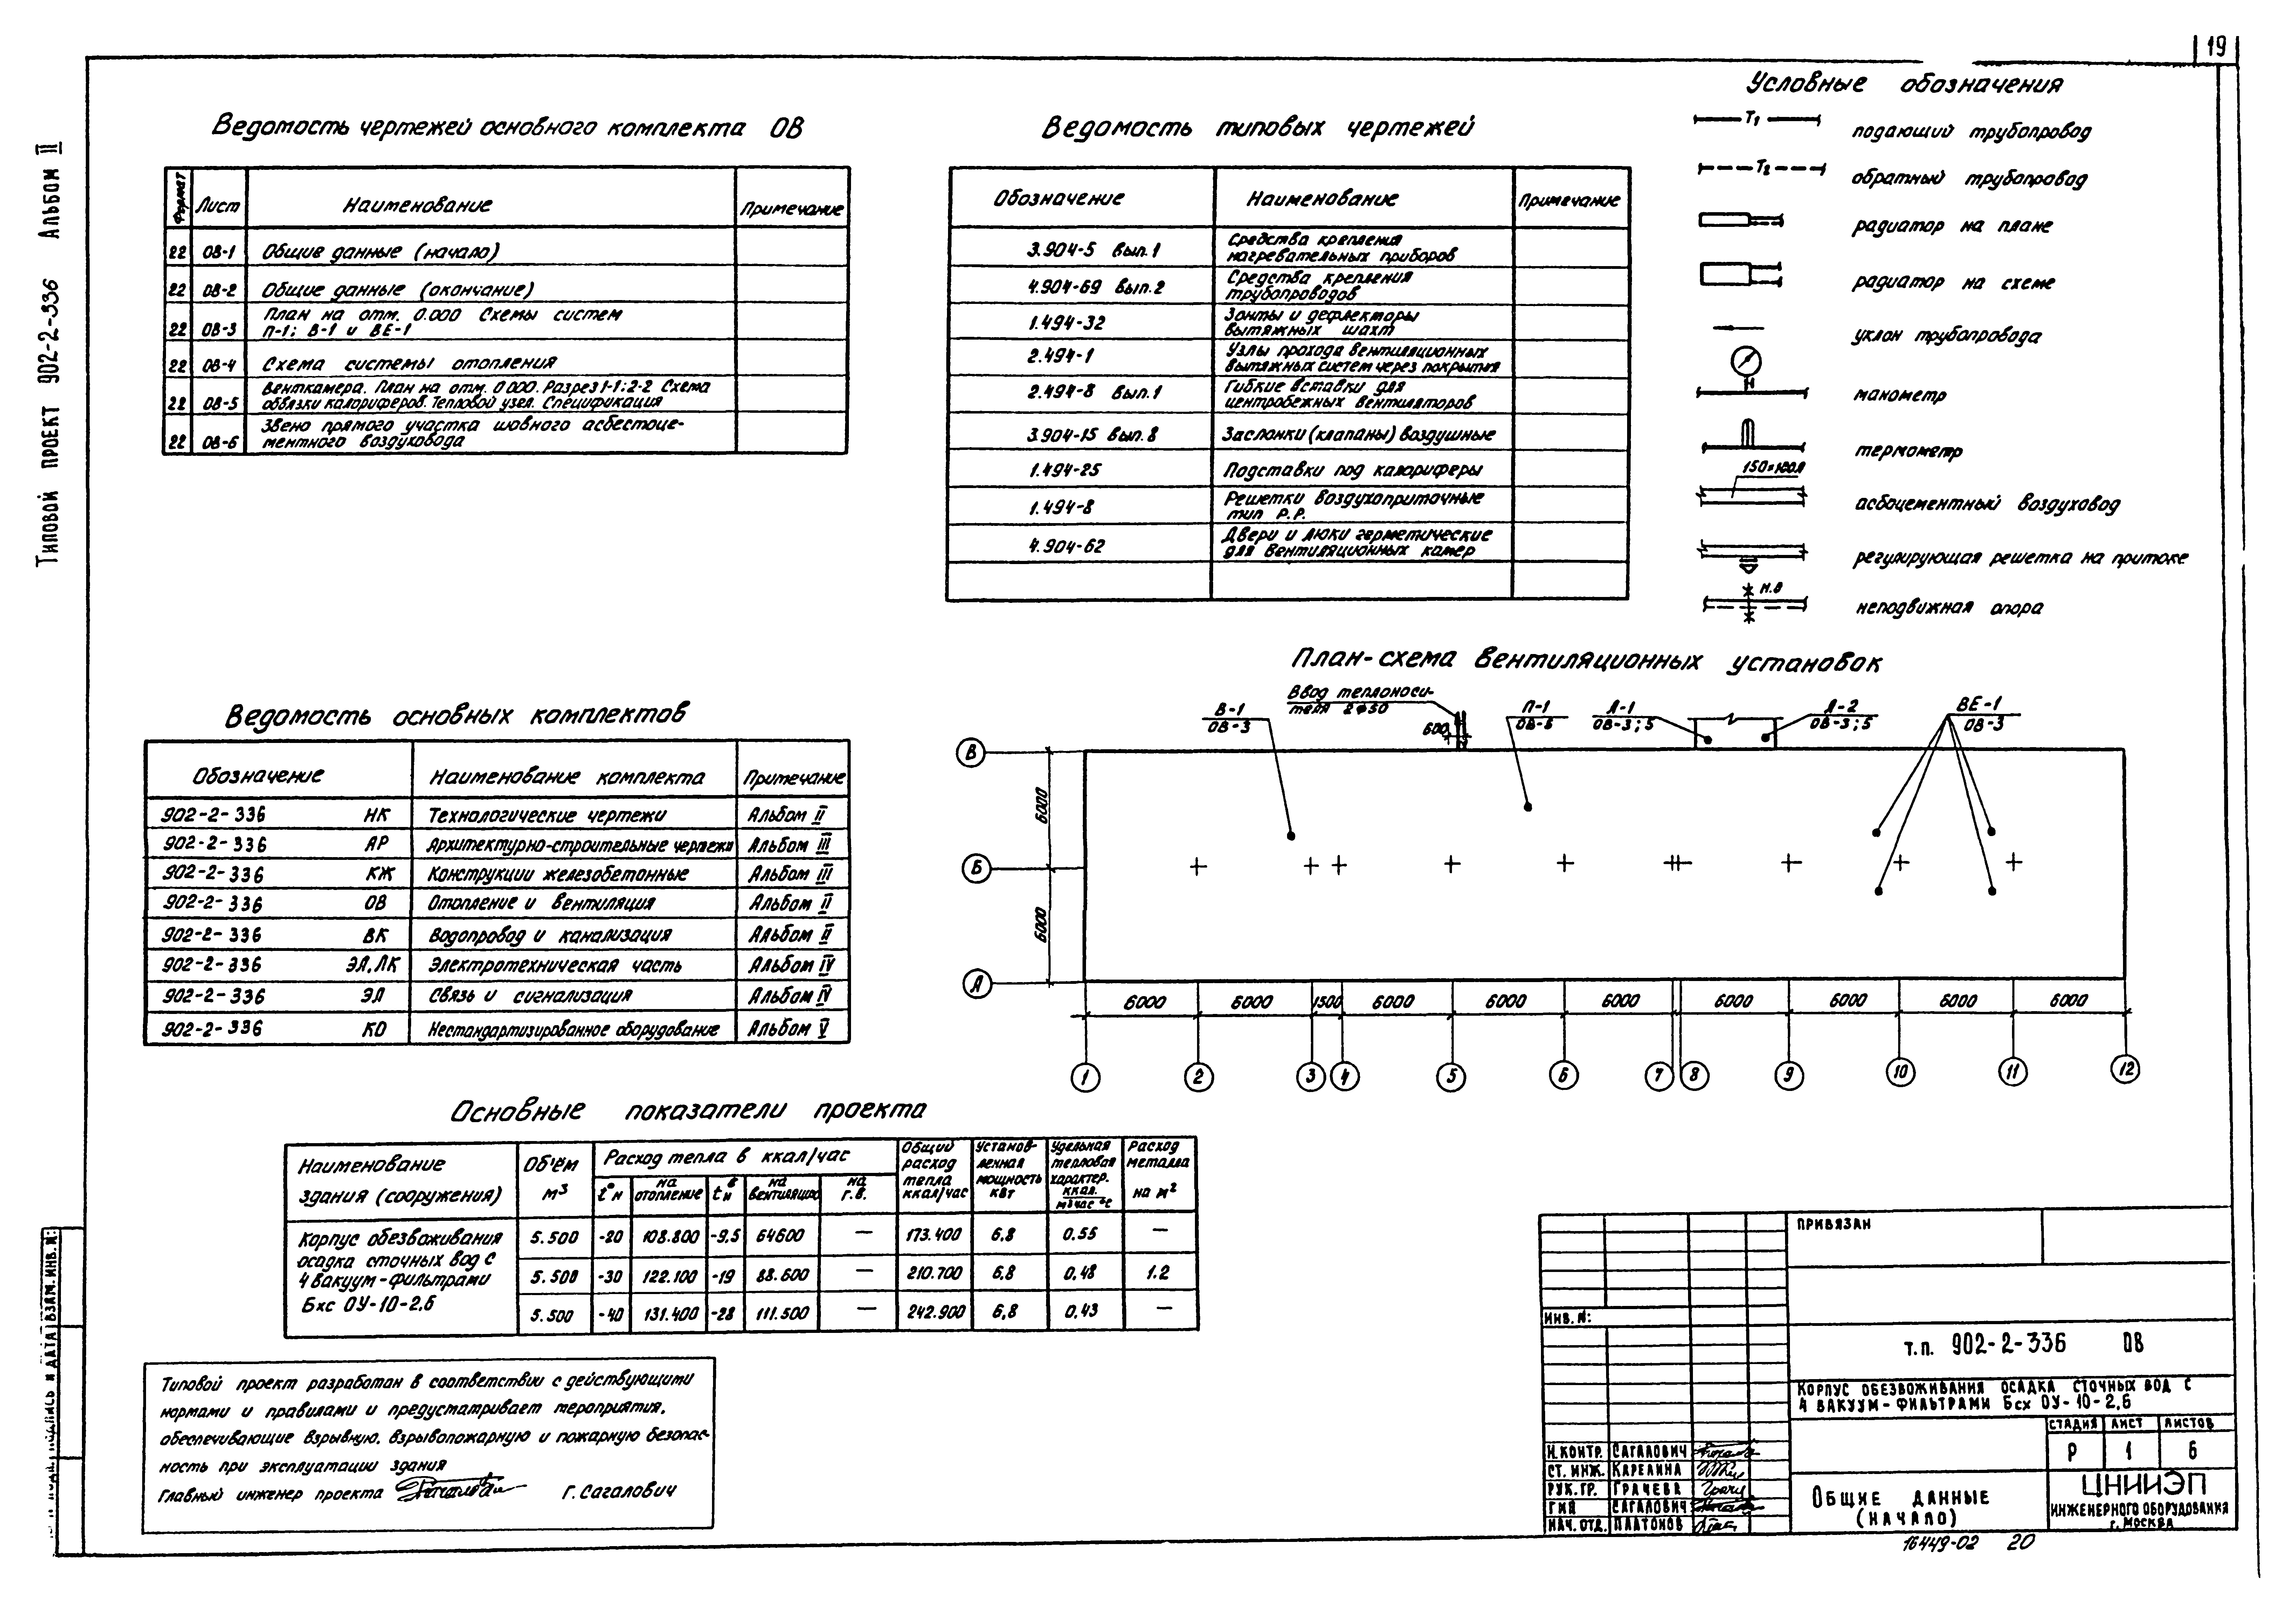 19
Типовой проект 902-2-336 Альбом II
Ведомость чертежей основного комплекта ОВ
Формат Лист Наименование Примечание
22 ОВ-1 Общие данные (начало)
22 ОВ-2 Общие данные (окончание)
22 ОВ-3 План на отм. 0.000 Схемы систем
П-1; В-1 и ВЕ-1
22 ОВ-4 Схема системы отопления
22 ОВ-5 Венткамера. План на отм. 0.000. Разрез 1-1; 2-2 Схема
обвязки калориферов. Тепловой узел. Спецификация
22 ОВ-6 Звено прямого участка шовного асбестоце-
ментного воздуховода
Ведомость типовых чертежей
Обозначение Наименование Примечание
3.904-5 вып.1 Средства крепления
нагревательных приборов
4.904-69 вып.2 Средства крепления
трубопроводов
1.494-32 Зонты и дефлекторы
вытяжных шахт
2.494-1 Узлы прохода вентиляционных
вытяжных систем через покрытия
2.494-8 вып.1 Гибкие вставки для
центробежных вентиляторов
3.904-15 вып.8 Заслонки (клапаны) воздушные
1.494-25 Подставки под калориферы
1.494-8 Решетки воздухоприточные
тип Р.Р.
4.904-62 Двери и люки герметические
для вентиляционных камер
Условные обозначения
Т1 подающий трубопровод
Т2 обратный трубопровод
радиатор на плане
радиатор на схеме
уклон трубопровода
манометр
термометр
асбоцементный воздуховод
регулирующая решетка на притоке
н.о
неподвижная опора
Ведомость основных комплектов
Обозначение Наименование комплекта Примечание
902-2-336 НК Технологические чертежи Альбом II
902-2-336 АР Архитектурно-строительные чертежи Альбом III
902-2-336 КЖ Конструкции железобетонные Альбом III
902-2-336 ОВ Отопление и вентиляция Альбом II
902-2-336 ВК Водопровод и канализация Альбом II
902-2-336 ЭЛ,ЛК Электротехническая часть Альбом IV
902-2-336 ЭЛ Связь и сигнализация Альбом IV
902-2-336 КО Нестандартизированное оборудование Альбом V
План-схема вентиляционных установок
В-1
ОВ-3
Ввод теплоноси-
теля 2ф50
600
П-1
ОВ-6
А-1
ОВ-3;5
А-2
ОВ-3;5
ВЕ-1
ОВ-3
В
6000
Б
6000
А
6000 6000 1500 6000 6000 6000 6000 6000 6000 6000
1 2 3 4 5 6 7 8 9 10 11 12
Основные показатели проекта
Наименование
здания (сооружения)
Об'ём
м³
Расход тепла в ккал/час
t°н на отопление tнв на вентиляцию на г.в.
Общий расход тепла ккал/час
Установленная мощность квт
Удельная тепловая характер. ккал. м³час °с
Расход металла на м²
Корпус обезвоживания
осадка сточных вод с
4 вакуум-фильтрами
Бхс ОУ-10-2,6
5.500 -20 108.800 -9.5 64600 — 173.400 6,8 0.55 —
5.500 -30 122.100 -19 88.600 — 210.700 6,8 0,48 1.2
5.500 -40 131.400 -28 111.500 — 242.900 6,8 0,43 —
Типовой проект разработан в соответствии с действующими
нормами и правилами и предусматривает мероприятия,
обеспечивающие взрывную, взрывопожарную и пожарную безопас-
ность при эксплуатации здания
Главный инженер проекта Г. Сагалович
Взам. инв. №:
и дата
Привязан
Инв. №:
Т.п. 902-2-336 ОВ
Корпус обезвоживания осадка сточных вод с
4 вакуум-фильтрами Бсх ОУ-10-2,6
Стадия Лист Листов
Р 1 6
Н.контр. Сагалович
Ст. инж. Карелина
Рук.гр. Грачева
ГИП Сагалович
Нач. отд. Платонов
Общие данные
(начало)
ЦНИИЭП
инженерного оборудования
г. Москва
16449-02 20